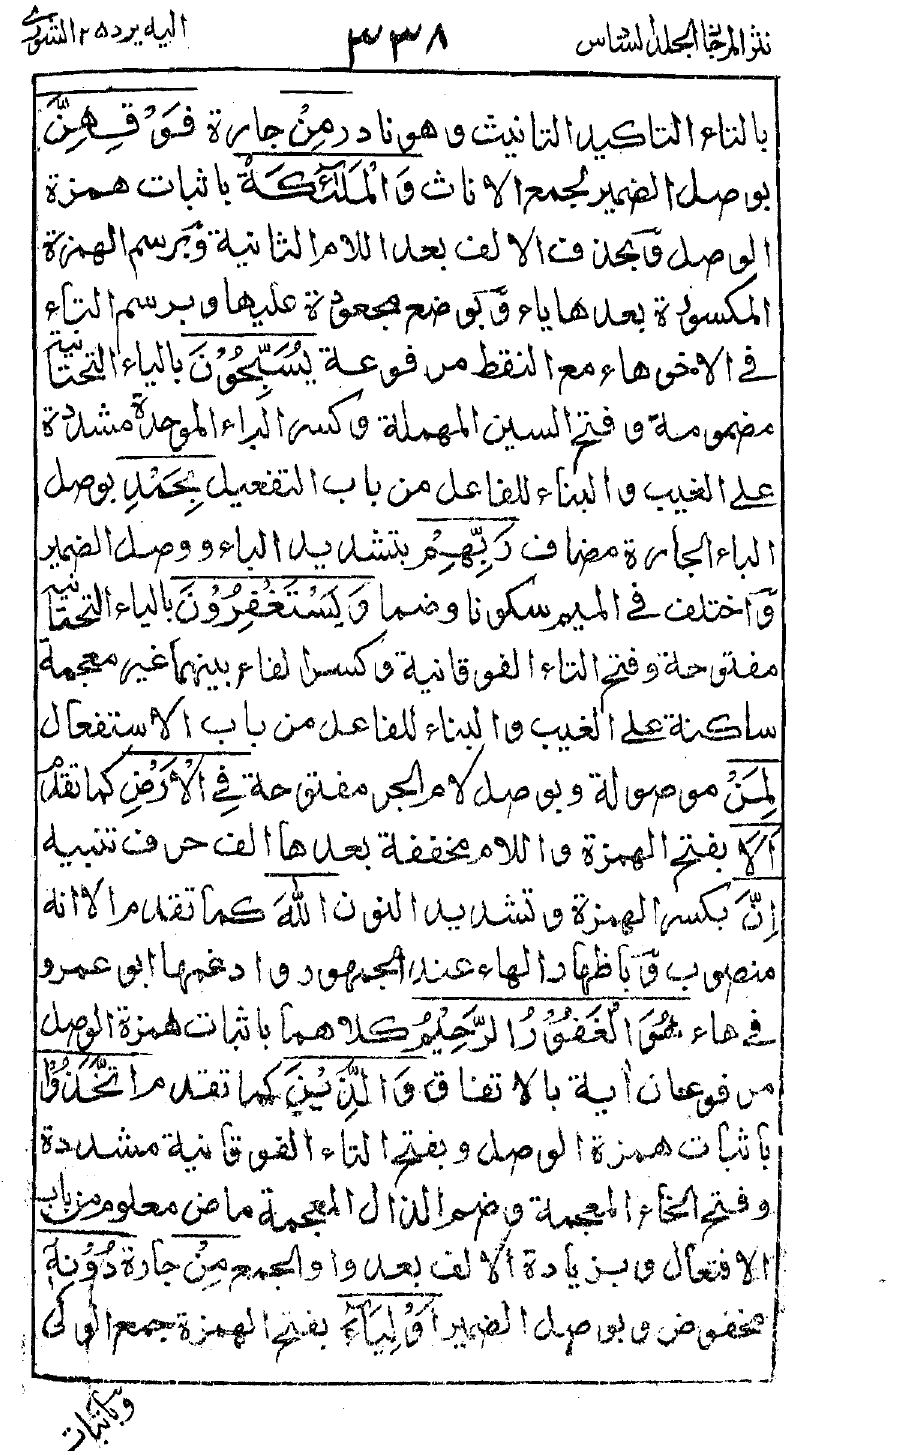 نثر المرجان المجلد السادس ٣٣٨ اليه يرد ٢٥ الشورى
بالتاء التاكيد التانيث و هو نادر مِنْ جارة فَوْقِهِنَّ
بوصل الضمير لجمع الاناث وَالْمَلٰٓئِكَةُ باثبات همزة
الوصل وَبحذف الالف بعد اللام الثانية وَبرسم الهمزة
المكسورة بعدها ياء وَّبوضع مجعودة عليها وبرسم التاء
فى الاخر هاء مع النقط مرفوعة يُسَبِّحُوْنَ بالياء التحتانية
مضمومة و فتح السين المهملة وكسر الباء الموحدة مشددة
على الغيب و البناء للفاعل من باب التفعيل بِحَمْدِ بوصل
الباء الجارة مضاف رَبِّهِمْ بتشديد الباء و وصل الضمير
وَّاختلف فى الميم سكونا وضما وَيَسْتَغْفِرُوْنَ بالياء التحتانية
مفتوحة و فتح التاء الفوقانية وكسر الفاء بينهما غير معجمة
ساكنة على الغيب و البناء للفاعل من باب الاستفعال
لِمَنْ موصولة و بوصل لام الجر مفتوحة فِى الْاَرْضِ كما تقدم
اَلَا بفتح الهمزة و اللام مخففة بعدها الف حرف تنبيه
اِنَّ بكسر الهمزة و تشديد النون اللّٰهَ كما تقدم الا انه
منصوب وَّباظهار الهاء عند الجمهور و ادغمها ابو عمرو
فى هاء هُوَ الْغَفُوْرُ الرَّحِيْمُ كلاهما باثبات همزة الوصل
مرفوعان اٰية بالاتفاق وَالَّذِيْنَ كما تقدم اتَّخَذُوْا
باثبات همزة الوصل و بفتح التاء الفوقانية مشددة
و فتح الخاء المعجمة و ضم الذال المعجمة ماض معلوم من باب
الافتعال و بزيادة الالف بعد واو الجمع مِنْ جارة دُوْنِهٖ
مخفوض و بوصل الضمير اَوْلِيَآءَ بفتح الهمزة جمع الولى
وباثبات